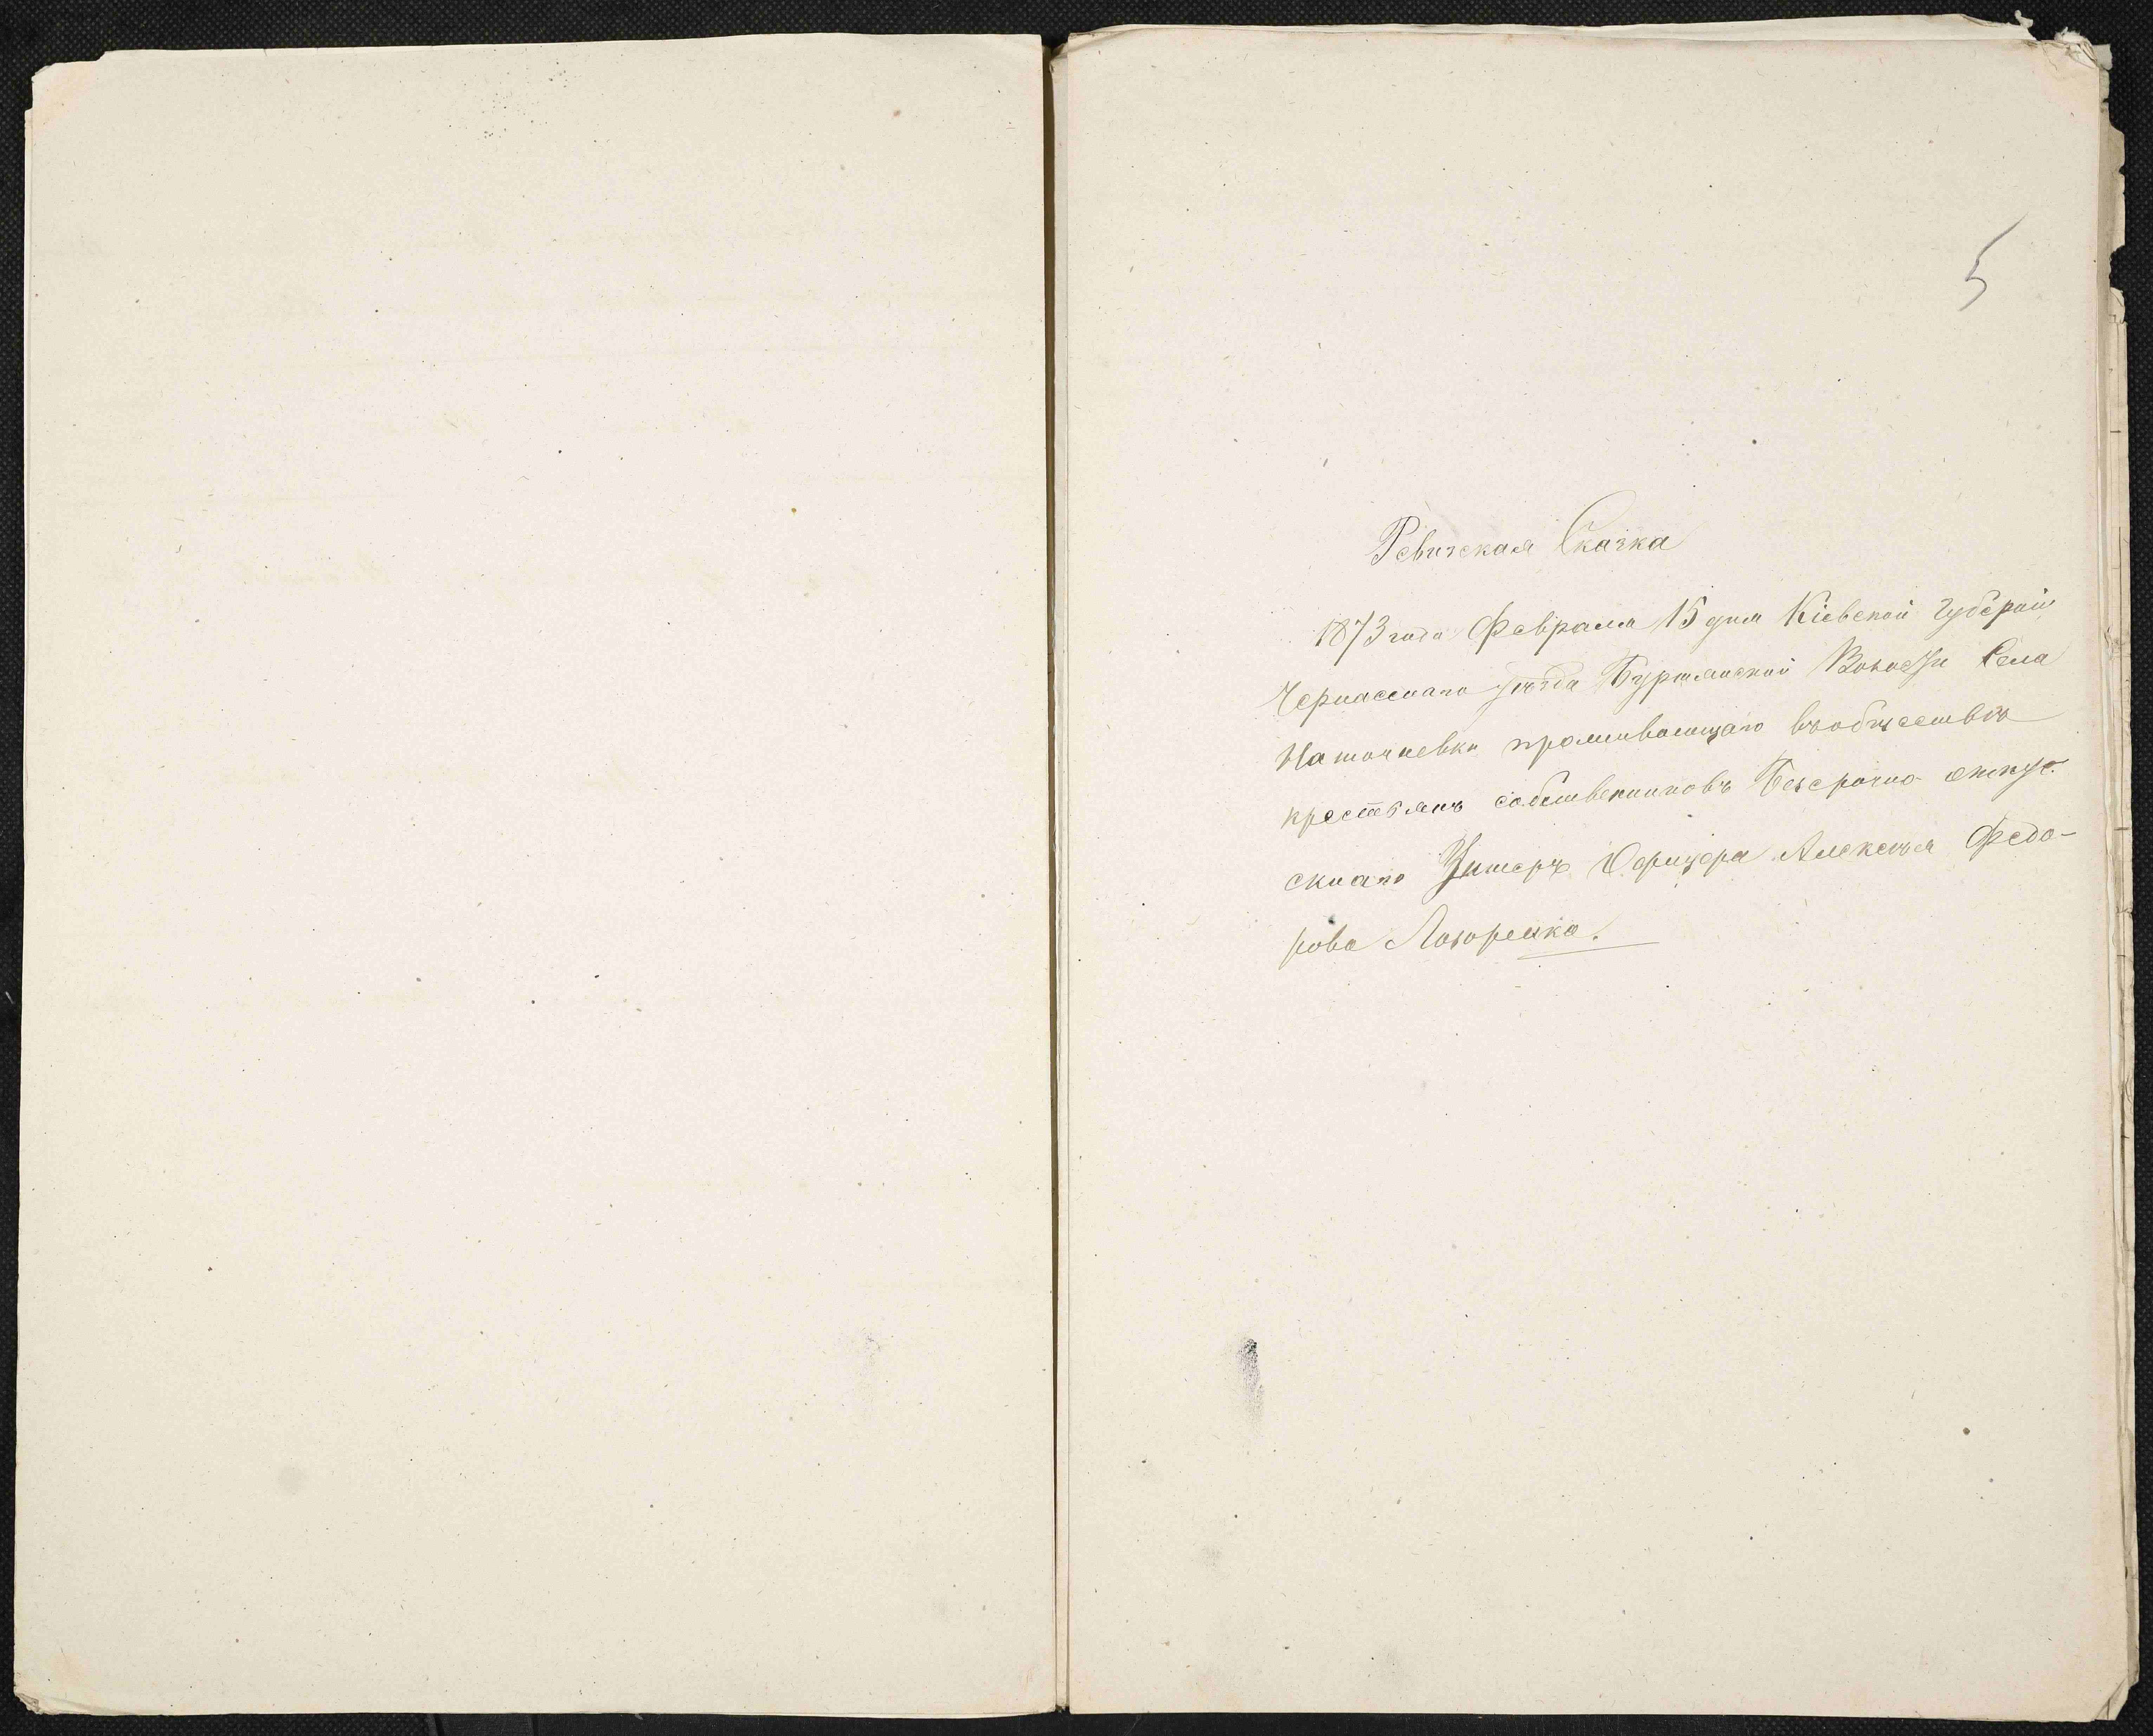 5
Ревизская Сказка
1873 года Февраля 15 дня Кіевской губерніи
Черкасскаго уѣзда Буртянской Волости Села
проживающаго въ обществѣ
крестьянъ собственниковъ Безсрочно отпу-
скнаго Унтеръ Офицера Алексѣя Федо-
рова Лазоренка.